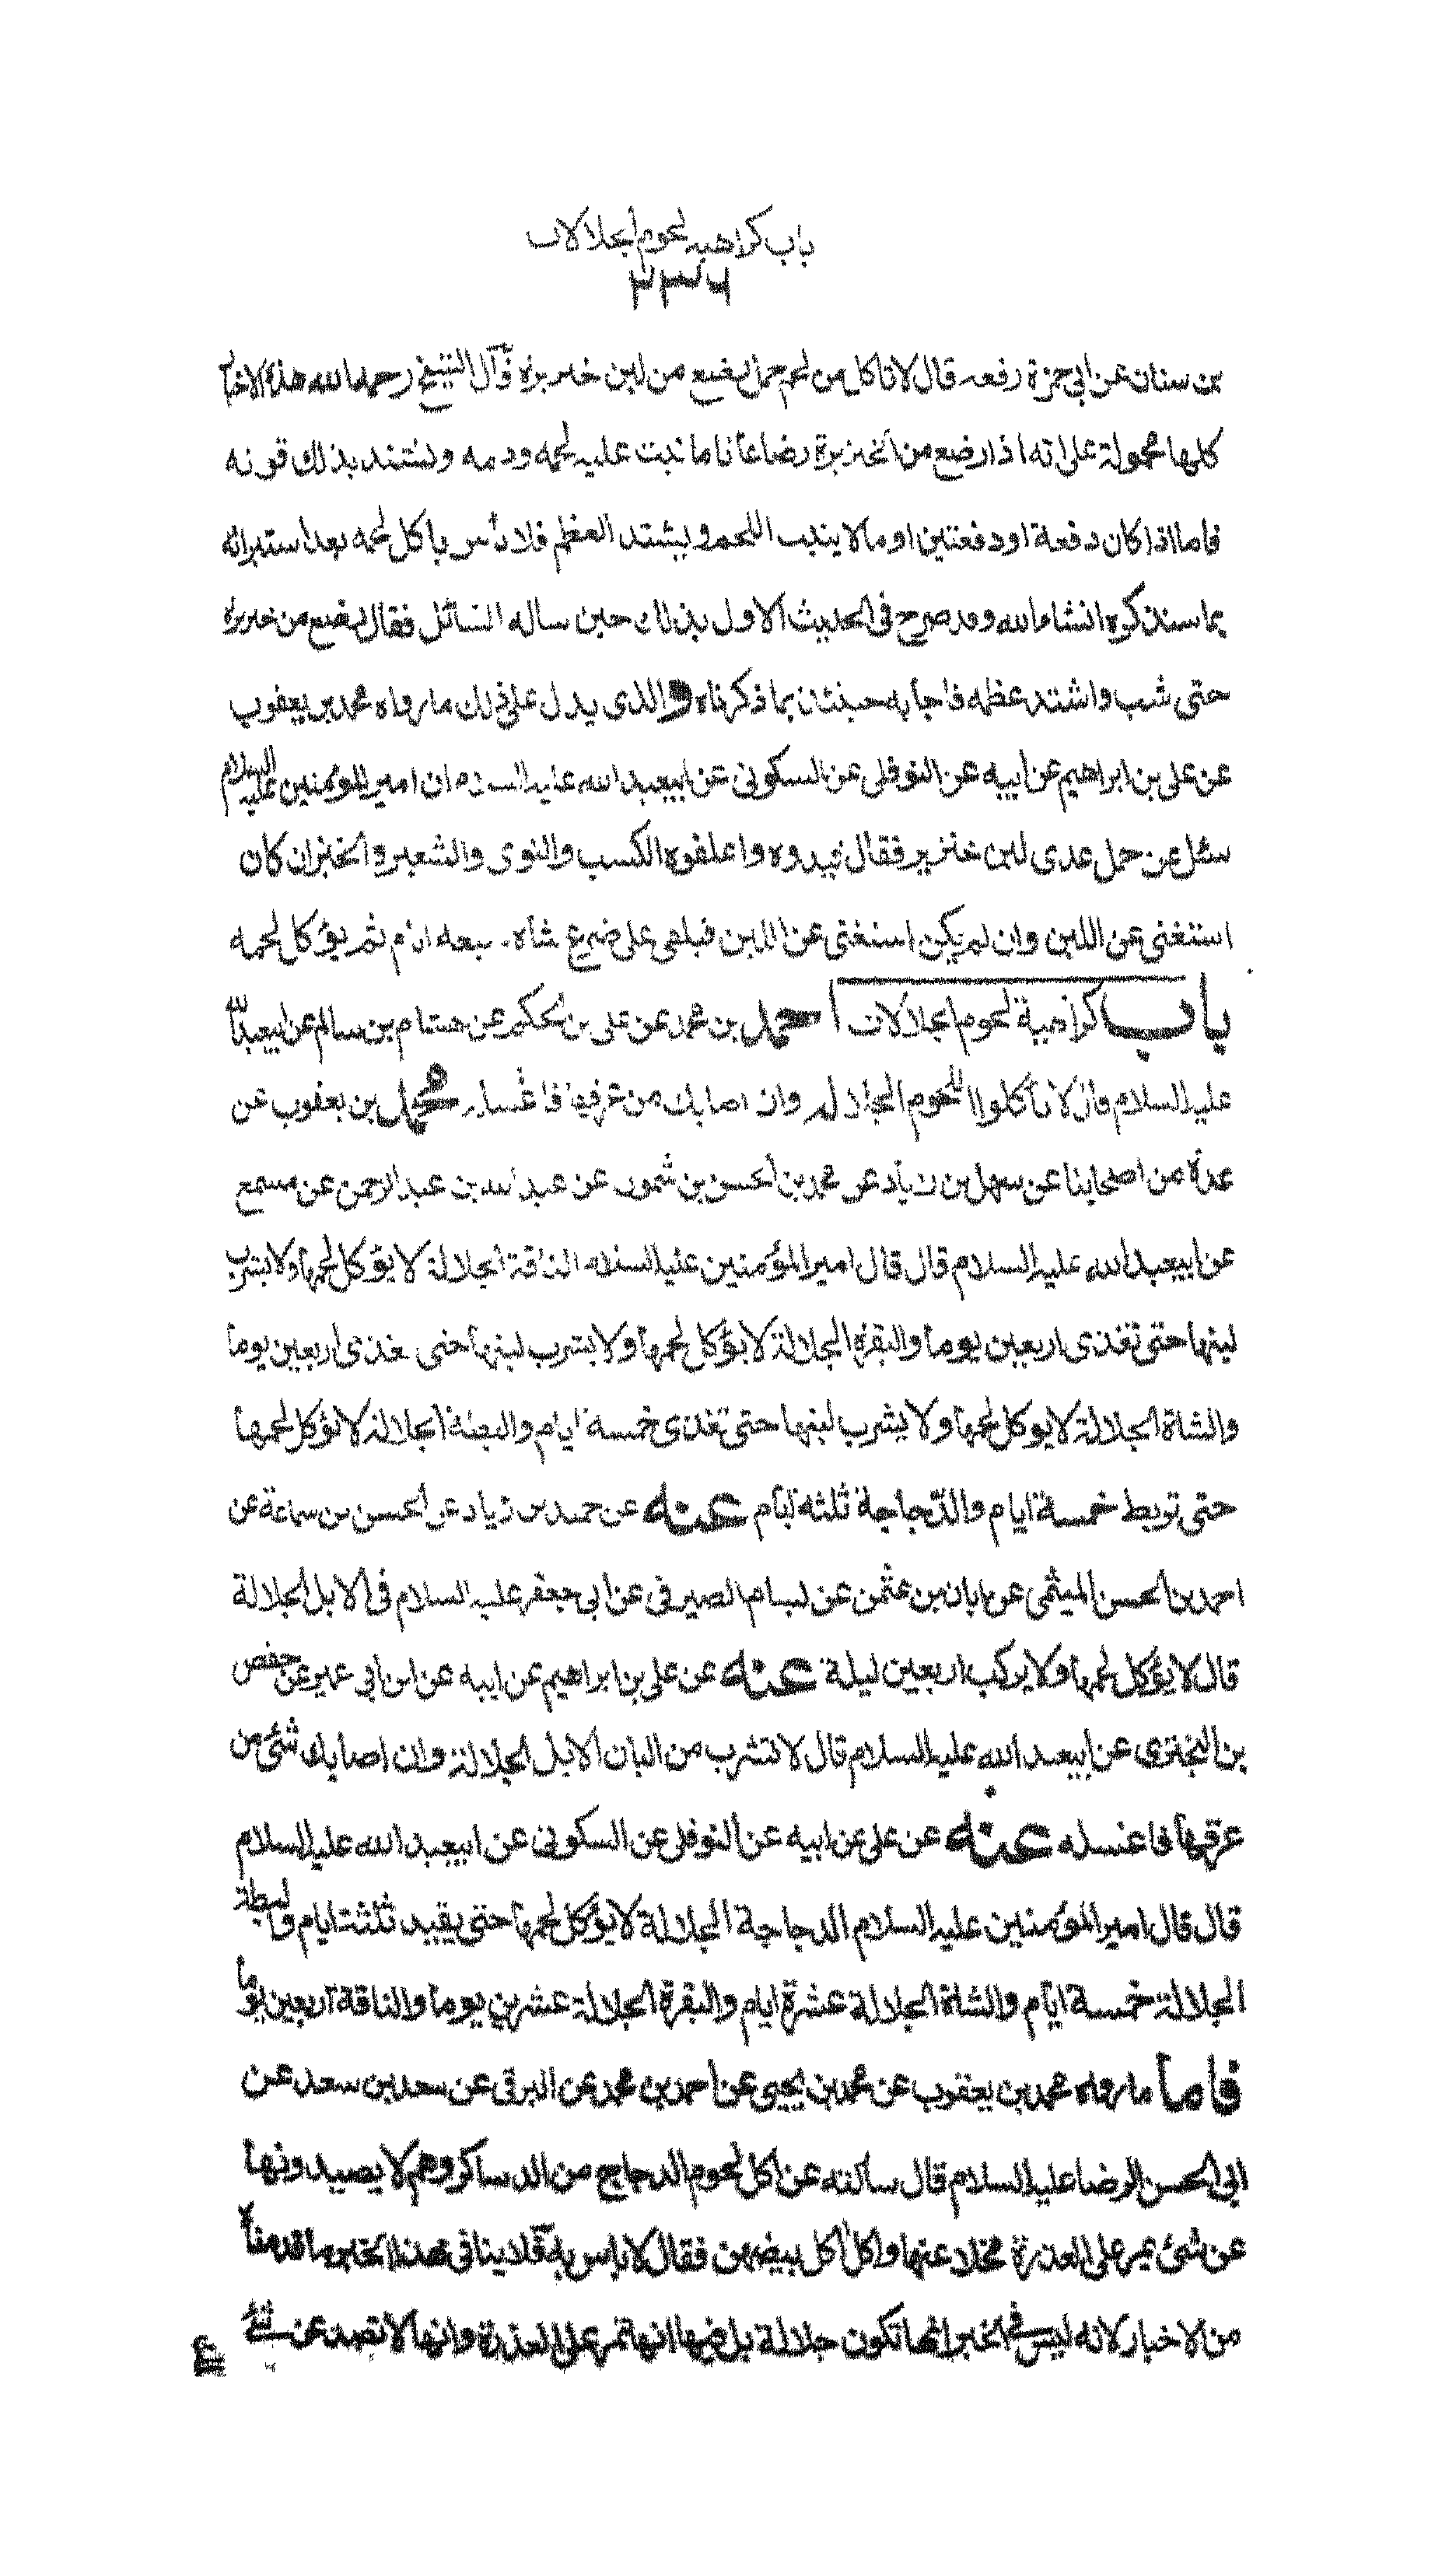 باب كراهيه لحوم الجلالات
بن سنان عن ابي حمزة رفعه قال لا تاكل من لحم حمل يرضع من لبن خنزيرة قال الشيخ رحمه الله هذه الاخبار
كلها محمولة على انه اذا رضع من الخنزيرة رضاعا تاما نبت عليه لحمه ودمه وتشتد بذلك قوته
فاما اذا كان دفعة او دفعتين او ما لا ينبت اللحم ويشتد العظم فلا بأس باكل لحمه بعد استبرائه
بما سنذكره انشاء الله وقد صرح في الحديث الاول بذلك حين ساله السائل فقال يرضع من خنزيرة
حتى شب واشتد عظمه فاجابه حينئذ بما ذكرناه والذى يدل على ذلك ما رواه محمد بن يعقوب
عن على بن ابراهيم عن ابيه عن النوفلى عن السكونى عن ابيعبد الله عليه السلام ان امير المؤمنين عليه السلام
سئل عن حمل غدى لبن خنزير فقال قيدوه واعلفوه الكسب والنوى والشعير والخبز ان كان
استغنى عن اللبن وان لم يكن استغنى عن اللبن فيلقى على ضرع شاة سبعة ايام ثم يؤكل لحمه
باب كراهية لحوم الجلالات احمد بن محمد عن على بن الحكم عن هشام بن سالم عن ابيعبد الله
عليه السلام قال لا تأكلوا اللحوم الجلالة وان اصابك من عرقها فاغسله محمد بن يعقوب عن
عدة من اصحابنا عن سهل بن زياد عن محمد بن الحسن بن شمون عن عبد الله بن عبد الرحمن عن مسمع
عن ابيعبد الله عليه السلام قال قال امير المؤمنين عليه السلام الناقة الجلالة لا يؤكل لحمها ولا يشرب
لبنها حتى تغذى اربعين يوما والبقرة الجلالة لا يؤكل لحمها ولا يشرب لبنها حتى تغذى اربعين يوما
والشاة الجلالة لا يوكل لحمها ولا يشرب لبنها حتى تغذى خمسة ايام والبطة الجلالة لا تؤكل لحمها
حتى تربط خمسة ايام والدجاجة ثلثة ايام عنه عن حميد بن زياد عن الحسن بن سماعة عن
احمد بن الحسن الميثمى عن ابان بن عثمن عن بسام الصيرفى عن ابى جعفر عليه السلام فى الابل الجلالة
قال لا يؤكل لحمها ولا يركب اربعين ليلة عنه عن على بن ابراهيم عن ابيه عن ابن ابي عمير عن حفص
بن البخترى عن ابيعبد الله عليه السلام قال لا تشرب من البان الابل الجلالة وان اصابك شئ من
عرقها فاغسله عنه عن على عن ابيه عن النوفلى عن السكونى عن ابيعبد الله عليه السلام
قال قال امير المؤمنين عليه السلام الدجاجة الجلالة لا يؤكل لحمها حتى يقيد ثلثة ايام والبطة
الجلالة خمسة ايام والشاة الجلالة عشرة ايام والبقرة الجلالة عشرين يوما والناقة اربعين يوما
فاما ما رواه محمد بن يعقوب عن محمد بن يحيى عن احمد بن محمد عن البرقى عن سعد بن سعد عن
ابى الحسن الرضا عليه السلام قال سألته عن اكل لحوم الدجاج من الدساكر وهم لا يصيدونها
عن شئ يمر على العذرة مخلا عنها واكل بيضهن فقال لا باس به فلا ينافى هذا الخبر ما قدمناه
من الاخبار لانه ليس فى الخبر انها تكون جلالة بل فيها انها تمر على العذرة وانها لا تصد عن شئ